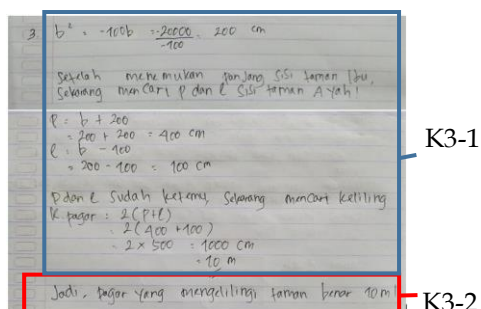 3. b² = -100b = -20000/-100 = 200 cm
Setelah menemukan panjang sisi taman Ibu,
Sekarang mencari p dan l sisi taman Ayah!
P = b + 200
= 200 + 200 = 400 cm
l = b - 100
= 200 - 100 = 100 cm
P dan l sudah ketemu, Sekarang mencari keliling
K. pagar = 2(P+l)
= 2(400 + 100)
= 2 × 500 = 1000 cm
= 10 m
Jadi, pagar yang mengelilingi taman benar 10m!
K3-1
K3-2